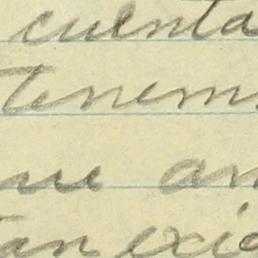 cuenta
tenem
an
tan exi